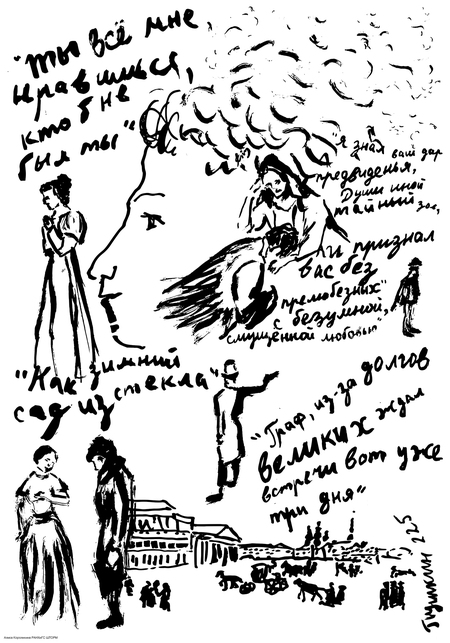 "Ты всё мне
нравишься,
кто б не
был ты"
"Я знал ваш дар
предвиденья,
Души иной
тайный зов,
и признал
вас без
прелюбезных"
с безумной,
смущённой любовью"
"Как зимний
сад из стекла"
"Граф, из-за долгов
великих ждал
встречи вот уже
три дня"
Пушкин 225